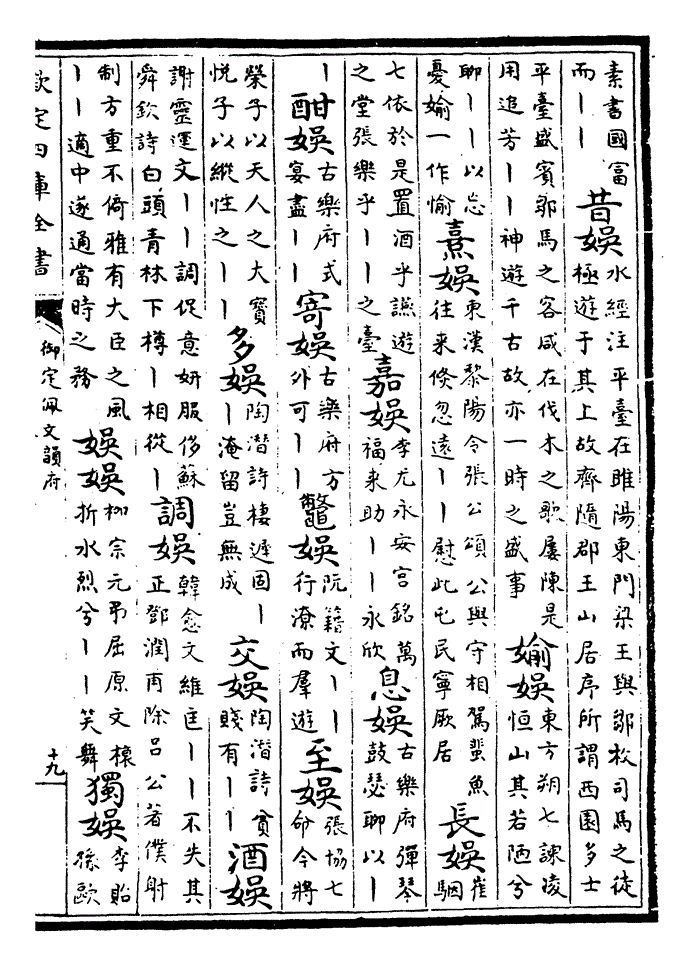 素書國富
而丨丨
昔娛
水經注平臺在睢陽東門梁王與鄒枚司馬之徒
極遊于其上故齊隨郡王山居序所謂西園多士
平臺盛賓鄒馬之客咸在伐木之歌屢陳是
用追芳丨丨神遊千古故亦一時之盛事
婾娛
東方朔七諫凌
恒山其若陋兮
聊丨丨以忘
憂婾一作愉
熹娛
東漢黎陽令張公頌公與守相駕蜚魚
往來倏忽遠丨丨慰此屯民寧厥居
長娛
崔
駰
七依於是置酒乎讌遊
之堂張樂乎丨丨之臺
嘉娛
李尤永安宮銘萬
福來助丨丨永欣
息娛
古樂府彈琴
鼓瑟聊以丨
丨
酣娛
古樂府式
宴盡丨丨
寄娛
古樂府方
外可丨丨
鼈娛
阮籍文丨丨
行潦而羣遊
至娛
張協七
命今將
榮子以天人之大寶
悅子以縱性之丨丨
多娛
陶潛詩棲遲固丨
丨淹留豈無成
交娛
陶潛詩貧
賤有丨丨
酒娛
謝靈運文丨丨調促意妍服侈蘇
舜欽詩白頭青林下樽丨相從丨
調娛
韓愈文維匡丨丨不失其
正鄧潤甫除呂公著僕射
制方重不倚雅有大臣之風
丨丨適中遂通當時之務
娛娛
柳宗元弔屈原文欀
折火烈兮丨丨笑舞
獨娛
李貽
孫歐
欽定四庫全書
御定佩文韻府
十九